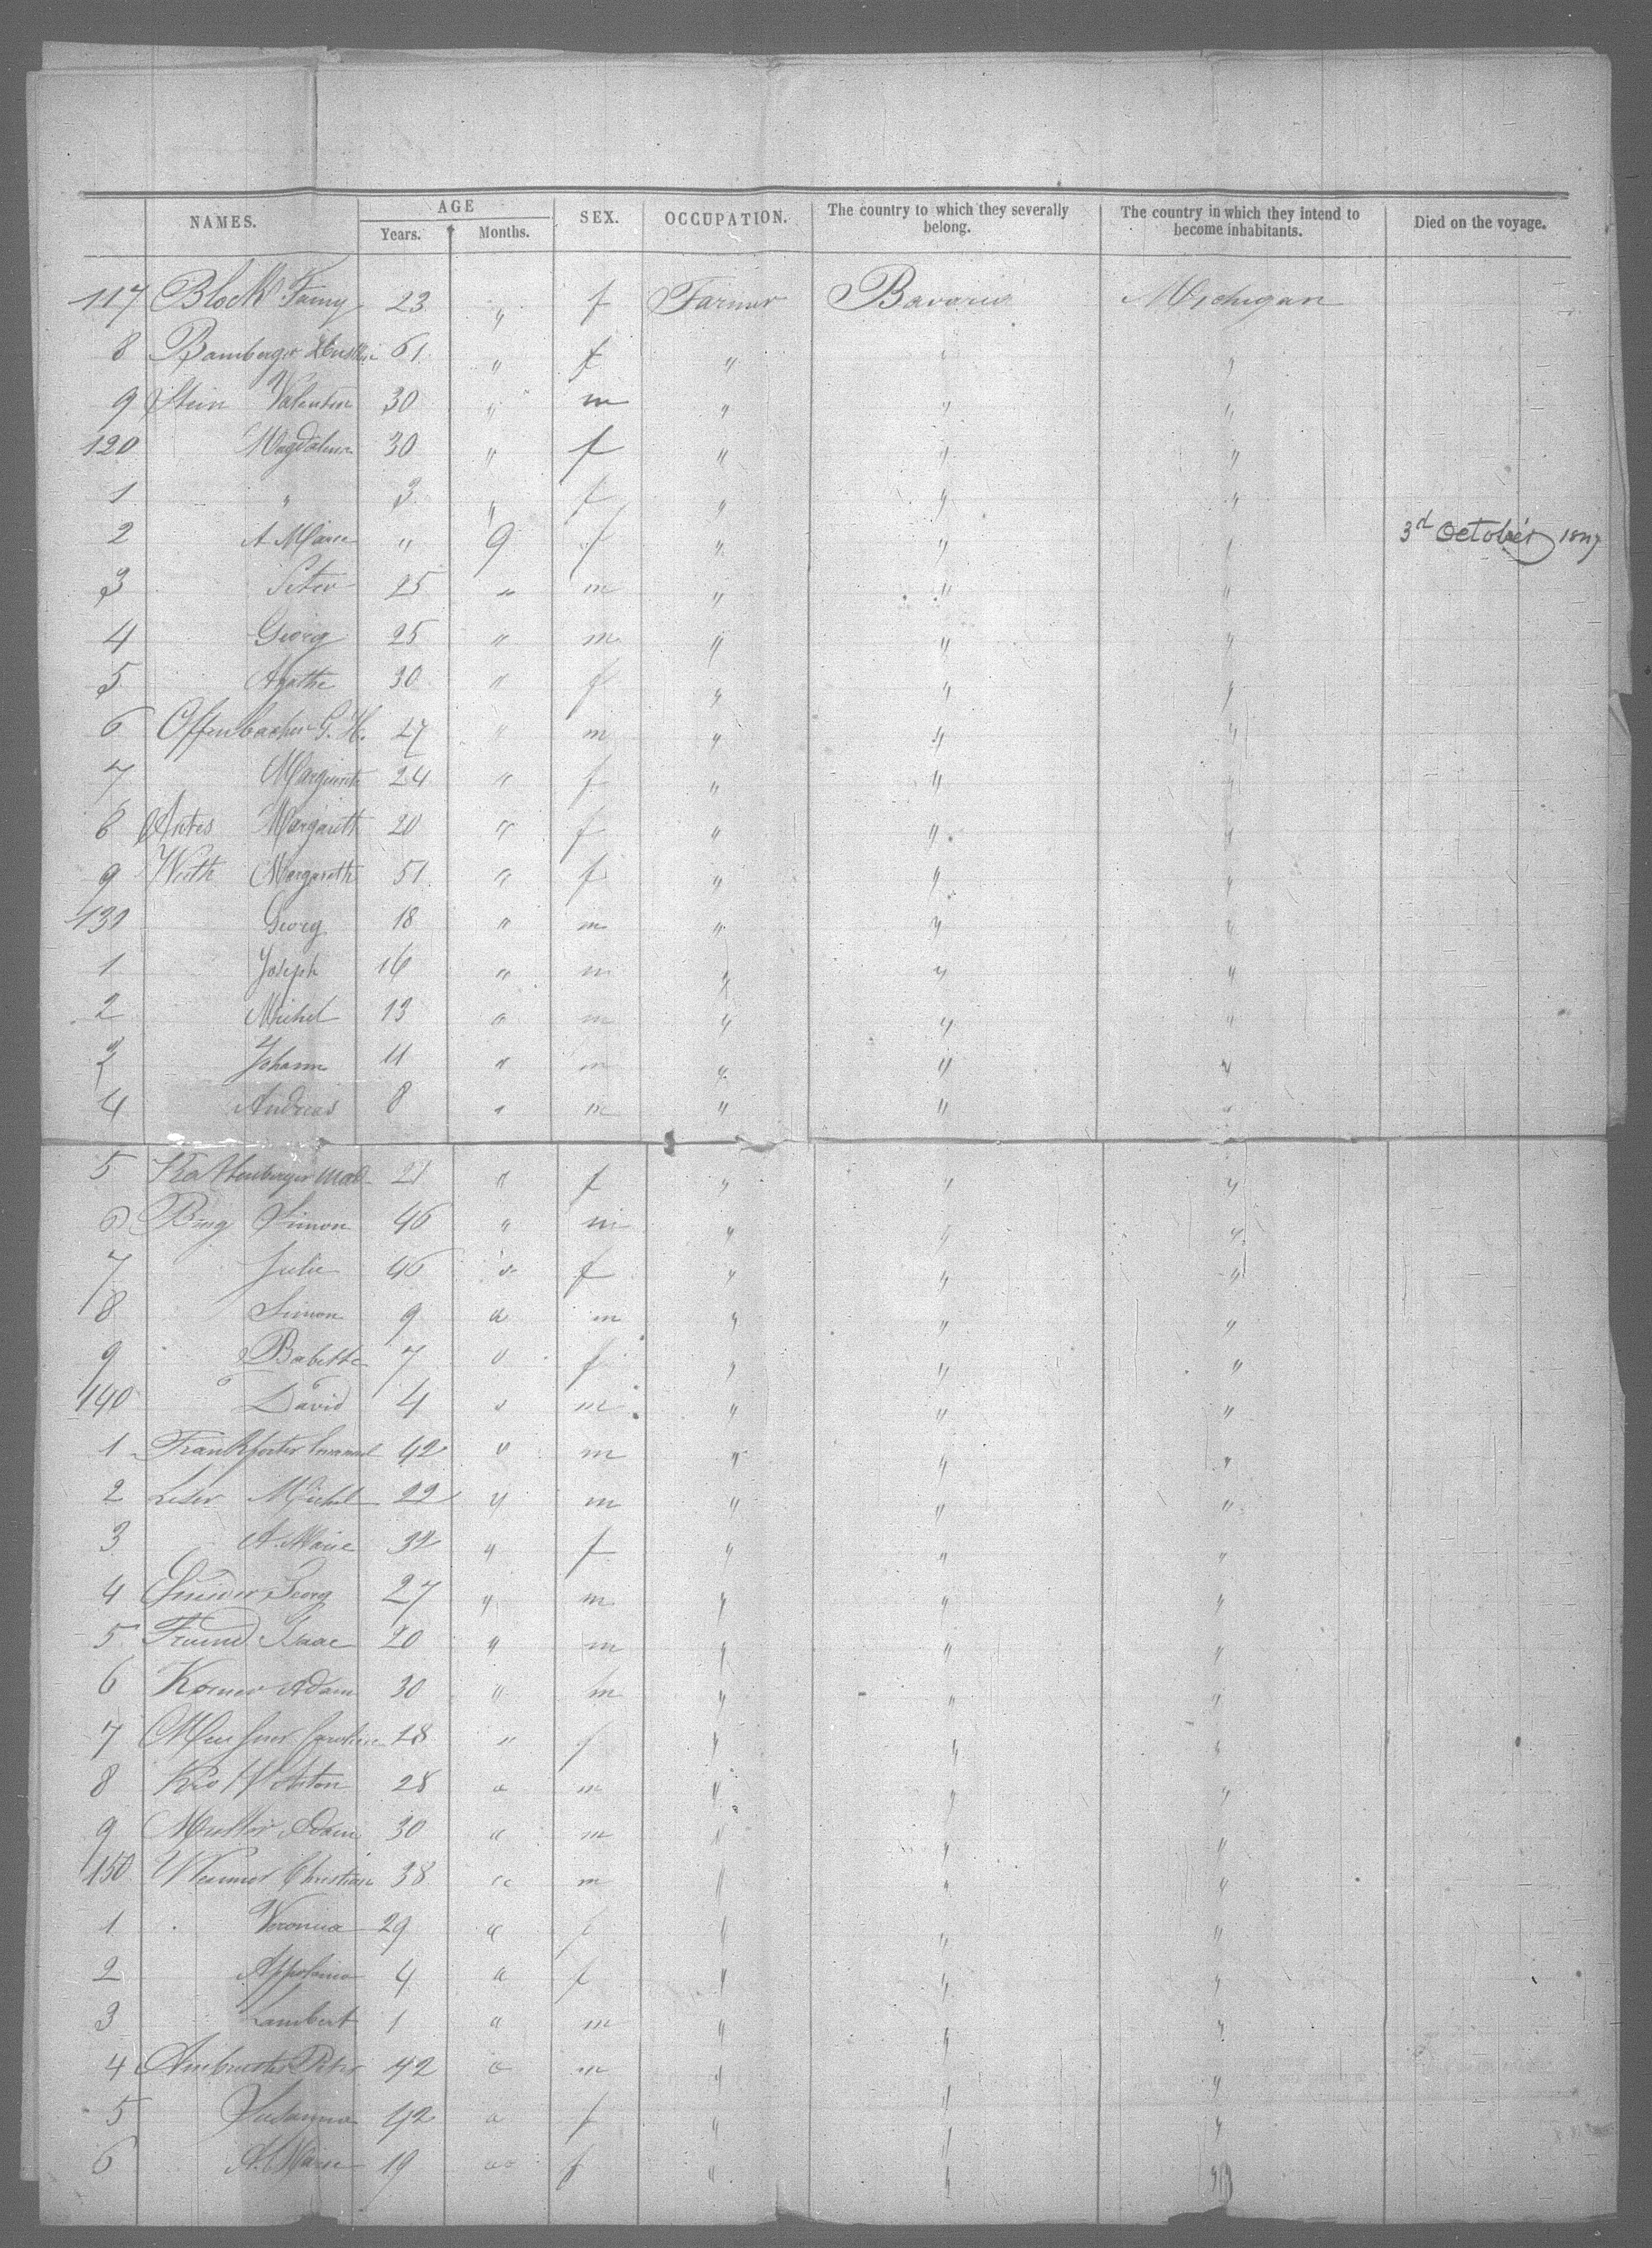 NAMES. AGE SEX. OCCUPATION. The country to which they severally belong. The country in which they intend to become inhabitants. Died on the voyage.
Years. Months.
117 Block Fanny 23 " f Farmer Bavaria Michigan
8 Bamberger 61 " f " " "
9 Stein Valentin 30 " m " " "
120 Magdalena 30 " f " " "
1 " 3 " f " " "
2 A Marie " 9 f " " " 3d October 1847
3 Peter 25 " m " " "
4 Georg 25 " m " " "
5 Agathe 30 " f " " "
6 Offenbacher G. H. 27 " m " " "
7 Margareth 24 " f " " "
8 Antes Margareth 20 " f " " "
9 Werth Margareth 51 " f " " "
130 Georg 18 " m " " "
1 Joseph 16 " m " " "
2 Michel 13 " m " " "
3 Johann 11 " m " " "
4 Andreas 8 " m " " "
5 Kattenberger Mad 21 " f " " "
6 Bing Simon 46 " m " " "
7 Julie 46 " f " " "
8 Simon 9 " m " " "
9 Babette 7 " f " " "
140 David 4 " m " " "
1 Frankforter Emanuel 42 " m " " "
2 Leser Michel 22 " m " " "
3 A. Marie 32 " f " " "
4 Georg 27 " m " " "
5 Freund Isaac 20 " m " " "
6 Korner Adam 30 " m " " "
7 Caroline 18 " f " " "
8 Anton 28 " m " " "
9 Muller Adam 30 " m " " "
150 Wermer Christian 38 " m " " "
1 Veronica 29 " f " " "
2 Appolonia 4 " f " " "
3 Lambert 1 " m " " "
4 Ambruster Peter 42 " m " " "
5 Susanna 42 " f " " "
6 A. Marie 19 " f " " "